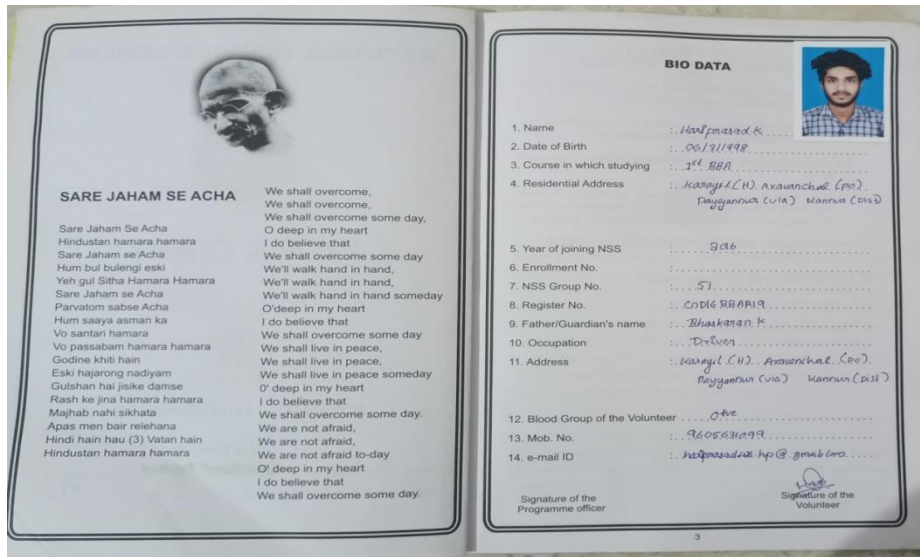 SARE JAHAM SE ACHA
Sare Jaham Se Acha
Hindustan hamara hamara
Sare Jaham se Acha
Hum bul bulengi eski
Yeh gul Sitha Hamara Hamara
Sare Jaham se Acha
Parvatom sabse Acha
Hum saaya asman ka
Vo santari hamara
Vo passabam hamara hamara
Godine khiti hain
Eski hajarong nadiyam
Gulshan hai jisike damse
Rash ke jina hamara hamara
Majhab nahi sikhata
Apas men bair relehana
Hindi hain hau (3) Vatan hain
Hindustan hamara hamara
We shall overcome,
We shall overcome,
We shall overcome some day,
O deep in my heart
I do believe that
We shall overcome some day
We'll walk hand in hand,
We'll walk hand in hand,
We'll walk hand in hand someday
O'deep in my heart
I do believe that
We shall overcome some day
We shall live in peace,
We shall live in peace,
We shall live in peace someday
0' deep in my heart
I do believe that
We shall overcome some day.
We are not afraid,
We are not afraid,
We are not afraid to-day
O' deep in my heart
I do believe that
We shall overcome some day.
BIO DATA
1. Name : Hariprasad.k
2. Date of Birth : 06/3/1998
3. Course in which studying : 1st BBA
4. Residential Address : Karayil (H). Aravanchal (po).
Payyannur (via) Kannur (Dist)
5. Year of joining NSS : 2016
6. Enrollment No. :
7. NSS Group No. : 51
8. Register No. :
9. Father/Guardian's name : Bhaskaran.k
10. Occupation : Driver
11. Address : Karayil (H). Aravanchal (po).
Payyannur (via) Kannur (Dist)
12. Blood Group of the Volunteer O+ve
13. Mob. No. : 9605631099
14. e-mail ID :
Signature of the
Programme officer
Signature of the
Volunteer
3